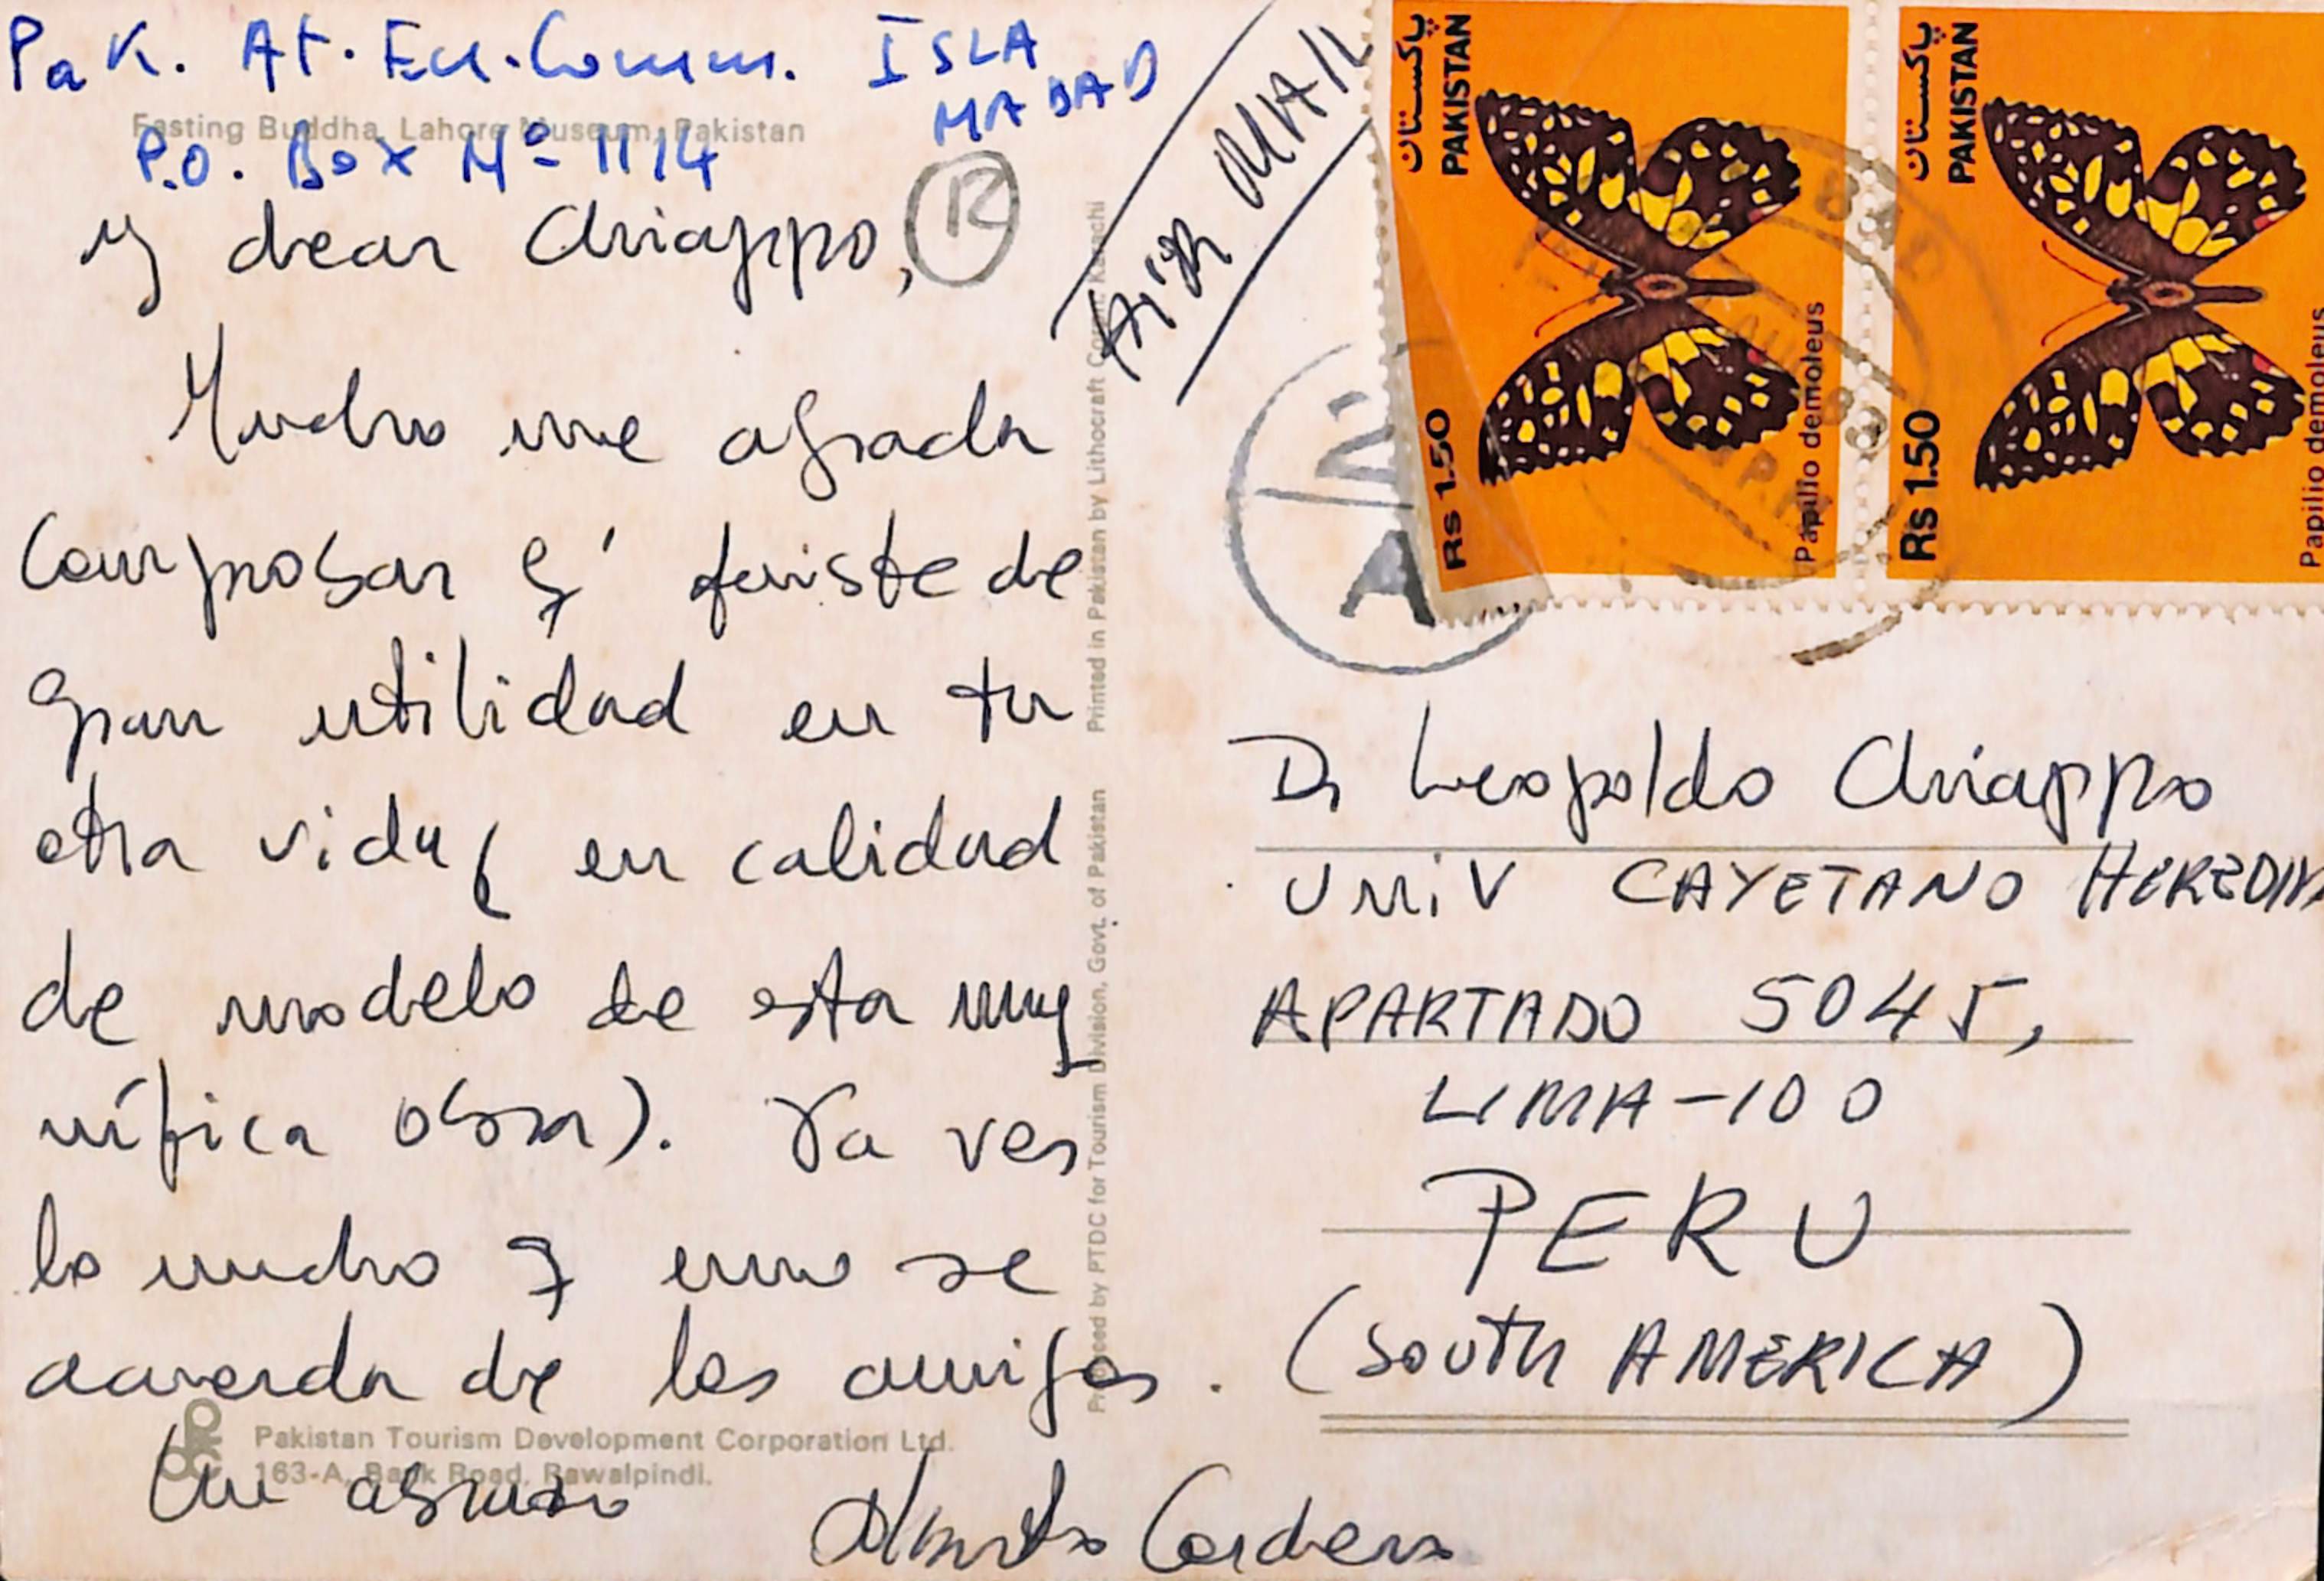 Pak. At. En. Comm. ISLA
MABAD
Fasting Buddha, Lahore Museum, Pakistan
P.O. Box Nº 1114
My dear Chiappo,
Mucho me agrada
comprobar q' fuiste de
gran utilidad en tu
otra vida (en calidad
de modelo de esta mag
nífica obra). Ya ves
lo mucho q uno se
acuerda de los amigos.
Un abrazo
Alberto Cordero
Pakistan Tourism Development Corporation Ltd.
163-A, Bank Road, Rawalpindi.
Produced by PTDC for Tourism Division, Govt. of Pakistan
Printed in Pakistan by Lithocraft Court, Karachi
AIR MAIL
R
2
A
پاکستان
PAKISTAN
Rs 1.50
Papilio demoleus
پاکستان
PAKISTAN
Rs 1.50
Papilio demoleus
Dr Leopoldo Chiappo
UNIV CAYETANO HEREDIA
APARTADO 5045,
LIMA-100
PERU
(SOUTH AMERICA)